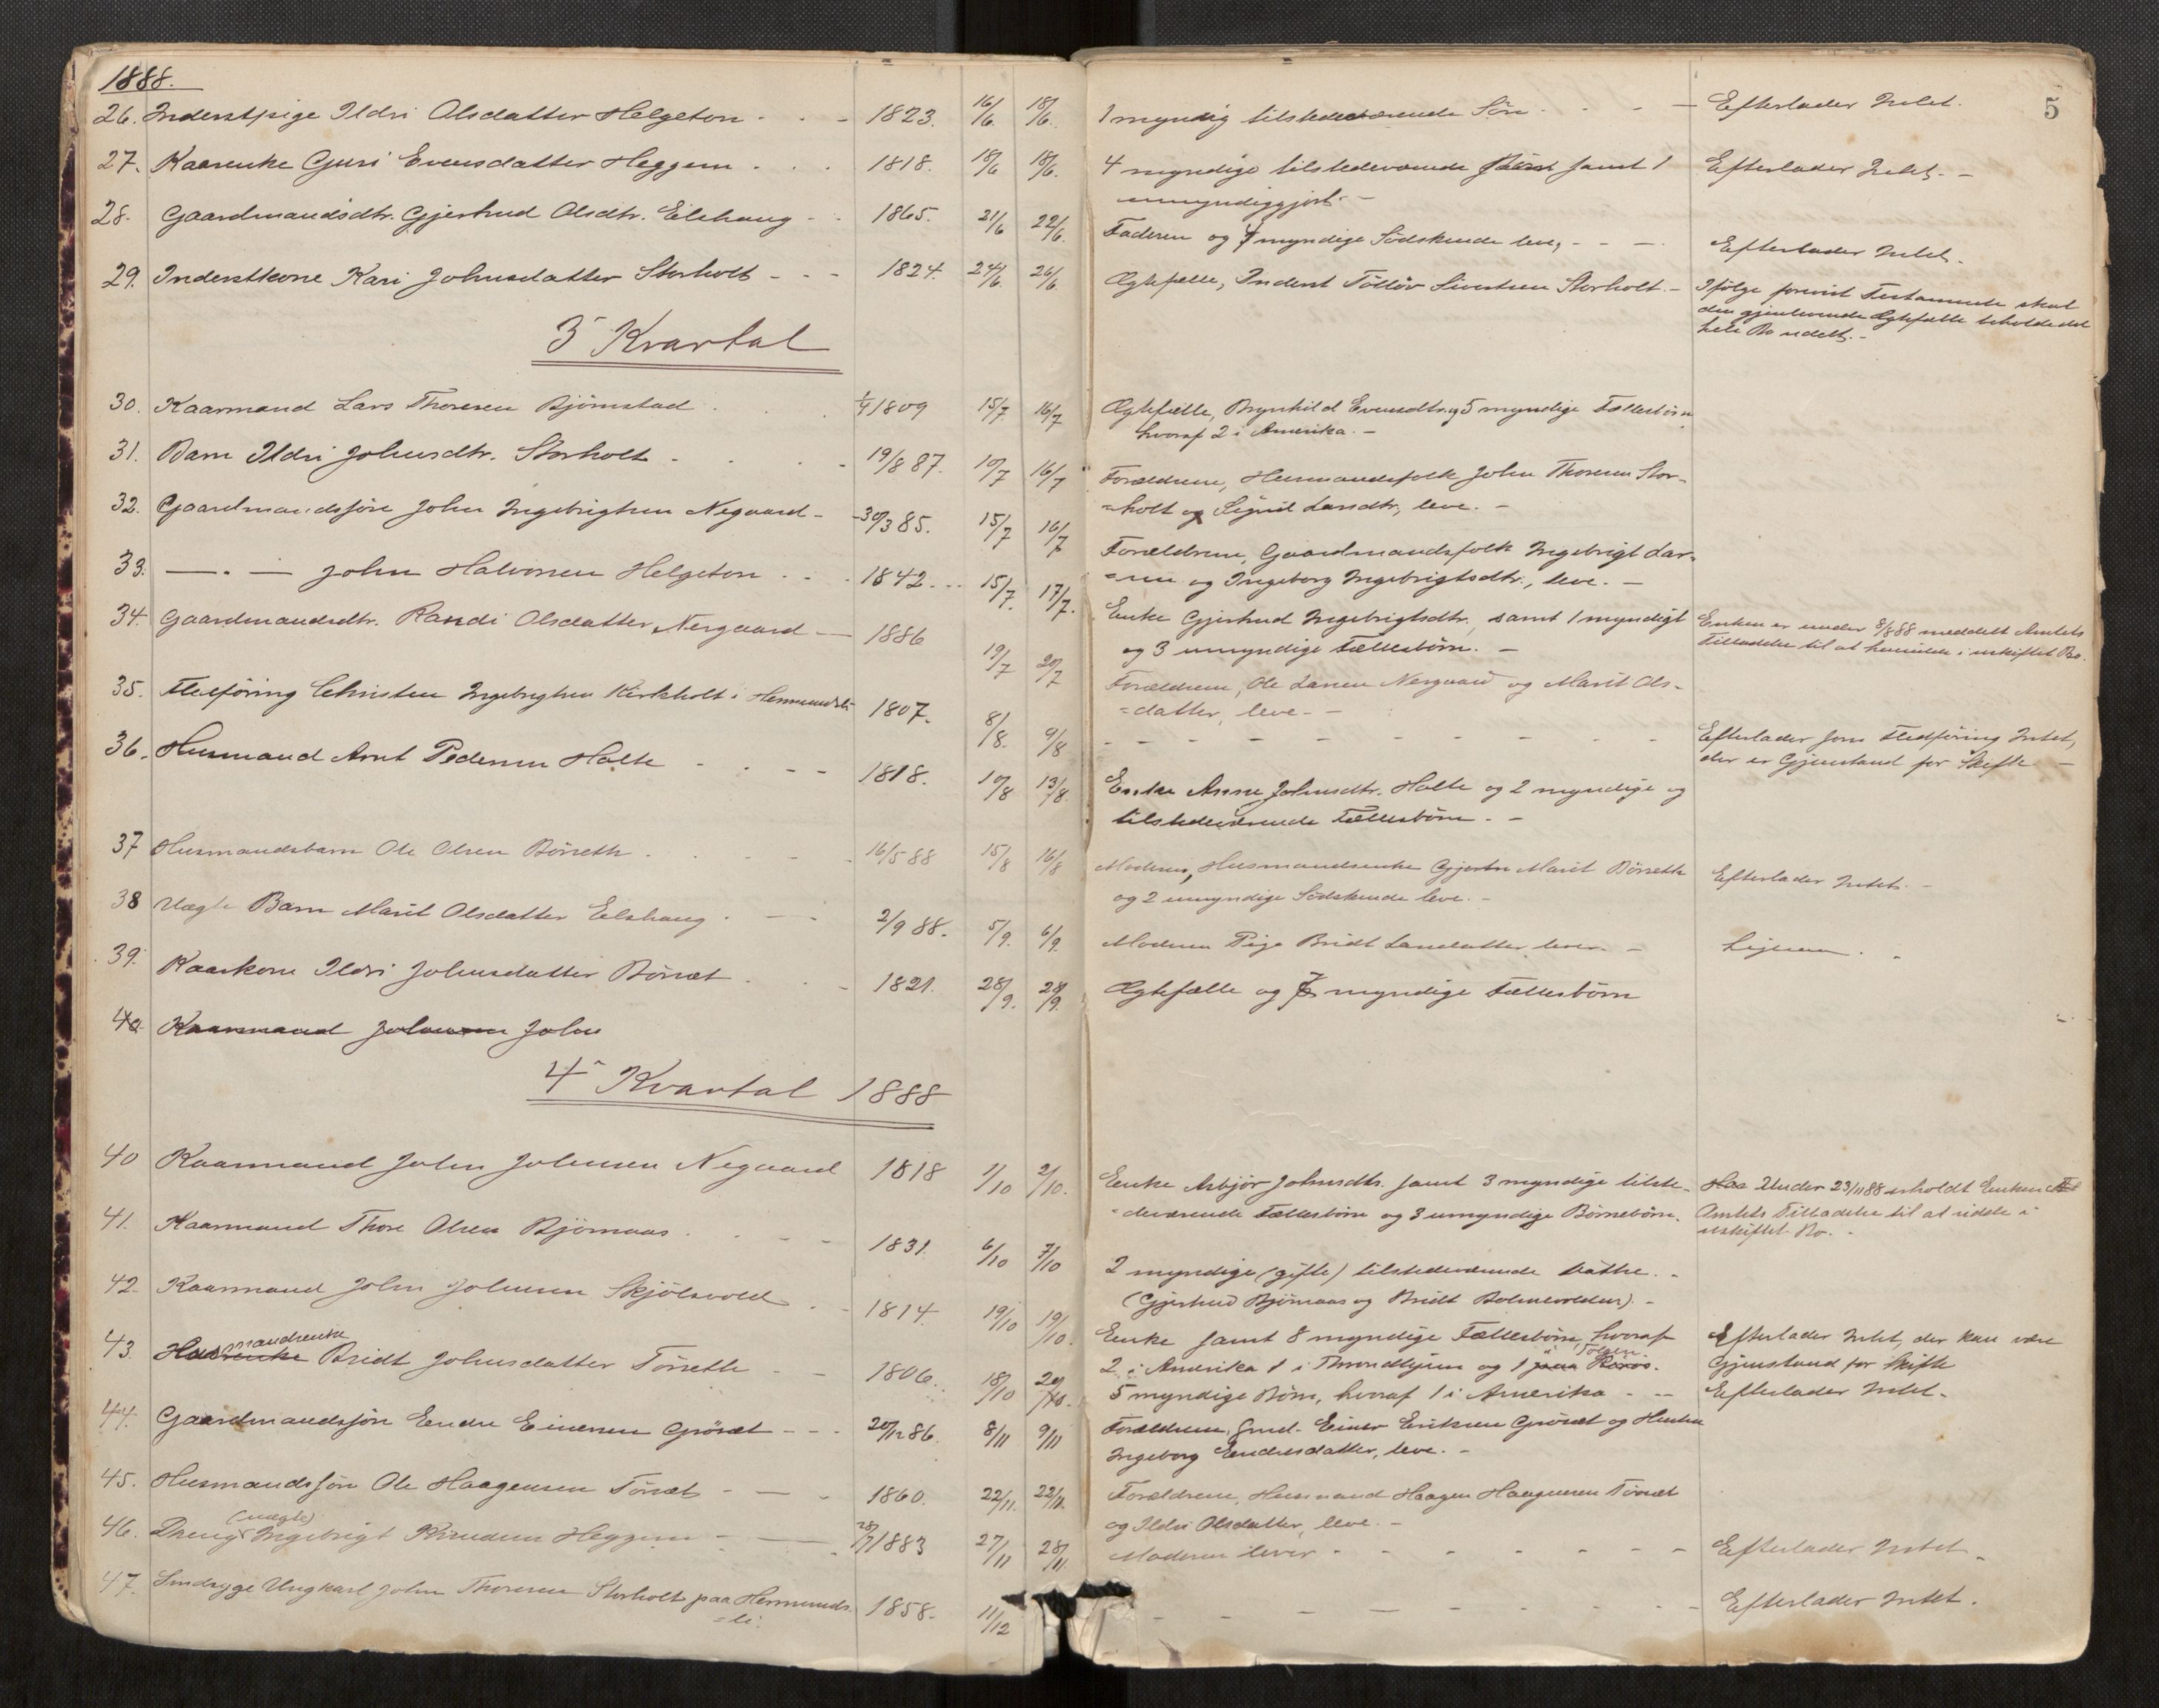 1888.
5
26. Inderstpige Ildri Olsdatter Helgeton - 1823. 16/6. 18/6. 1 myndig tilstedeværende Søn - Efterlader Intet.
27. Kaarenke Guri Evensdatter Heggem 1818. 18/6 18/6. 4 myndige tilstedeværende Børn samt 1 Efterlader Intet. -
umyndiggjort. -
28. Gaardmandsdtr. Gjertrud Olsdtr. Eilshaug - 1865. 21/6 22/6. Faderen og 4 myndige Södskende leve, - - - Efterlader Intet.
29. Inderstkone Kari Johnsdatter Storholt - - - 1824. 24/6. 26/6 Ægtefælle, Inderst Tölløv Sivertsen Storholt. - Ifølge forevist Testamente skal
den gjenlevende Ægtefælle beholde det
hele Bo udelt. -
3' Kvartal
30. Kaarmand Lars Thoresen Bjørnstad 1/4 1809 15/7. 16/7 Ægtefælle, Brynhild Evensdtr. og 5 myndige Fællesbörn,
hvoraf 2 i Amerika. -
31. Barn Ildri Johnsdtr. Storholt - 19/8 87. 10/7 16/7 Forældrene, Husmandsfolk John Thoresen Stor-
=holt og Sigrid Larsdtr, leve. -
32. Gaardmandssøn John Ingebrigtsen Negaard - 30/3 85. 15/7 16/7 Forældrene, Gaardmandsfolk Ingebrigt Lar=
=sen og Ingeborg Ingebrigtsdtr., leve. -
33. — . — John Halvorsen Helgeton 1842 15/7. 17/7. Enke Gjertrud Ingebrigtsdtr., samt 1 myndigt
og 3 umyndige Fællesbörn. - Enken er under 8/8 88 meddelt Amtets
Tilladelse til at hensidde i uskiftet Bo.
34. Gaardmandsdtr. Randi Olsdatter Nergaard - 1886 19/7 20/7 Forældrene, Ole Larsen Nergaard og Marit Ols-
=datter, leve - -
35. Fledføring Christen Ingebrigtsen Kirkholt i Hermundsli 1807. 8/8. 9/8 - - - - Efterlader som Fledføring Intet,
der er Gjenstand for Skifte -
36. Husmand Arnt Pedersen Holte - - - 1818. 10/8 13/8. Enke Anne Johnsdtr. Holte og 2 myndige og
tilstedeværende Fællesbörn. -
37 Husmandsbarn Ole Olsen Börseth 16/5 88 15/8 16/8 Moderen, Husmandsenke Marit Börseth Efterlader Intet. -
og 2 umyndige Södskende leve. -
38 Uægte Barn Marit Olsdatter Eilshaug 2/9 88. 5/9. 6/9. Moderen Pige Bridt Larsdatter lever. - Ligesaa.
39. Kaarkone Ildri Johnsdatter Börset 1821. 28/9. 28/9. Ægtefælle og 7 myndige Fællesbörn
40. Kaarmand Johnsen John
4' Kvartal 1888
40 Kaarmand John Johnsen Negaard 1818 1/10 2/10. Enke Asbjör Johnsdtr. samt 3 myndige tilste-
=deværende Fællesbörn og 3 umyndige Börnebörn. Under 23/11 88 erholdt Enken
Amtets Tilladelse til at sidde i
uskiftet Bo. -
41. Kaarmand Thore Olsen Bjørnaas 1831. 6/10 7/10 2 myndige (gifte) tilstedeværende Døttre. -
(Gjertrud Bjørnaas og Bridt Bolmevolden). -
42. Kaarmand John Johnsen Skjölsvold 1814. 19/10 19/10. Enke samt 8 myndige Fællesbörn, hvoraf
2 i Amerika 1 i Throndhjem og 1 i Tolgen paa Röros. Efterlader Intet, der kan være
Gjenstand for Skifte
43. Husmandsenke Bridt Johnsdatter Törseth - 1806. 18/10 20/10. 5 myndige Börn, hvoraf 1 i Amerika - - Efterlader Intet.
44. Gaardmandssøn Endre Einersen Grøset - - - 20/12 86. 8/11 9/11 Forældrene, Gmd. Einer Eriksen Grøset og Hustru
Ingeborg Endresdatter, leve. -
45. Husmandssøn Ole Haagensen Törset - 1860. 22/11. 22/11. Forældrene, Husmand Haagen Haagensen Törset
og Ildri Olsdatter, leve. -
46. Dreng (uægte) Ingebrigt Knudsen Heggem - 28/7 1883 27/11 28/11. Moderen lever - - - Efterlader Intet.
47. Sindsyge Ungkarl John Thoresen Storholt paa Hermunds-
=li. 1858. 11/12 - - - - Efterlader Intet.